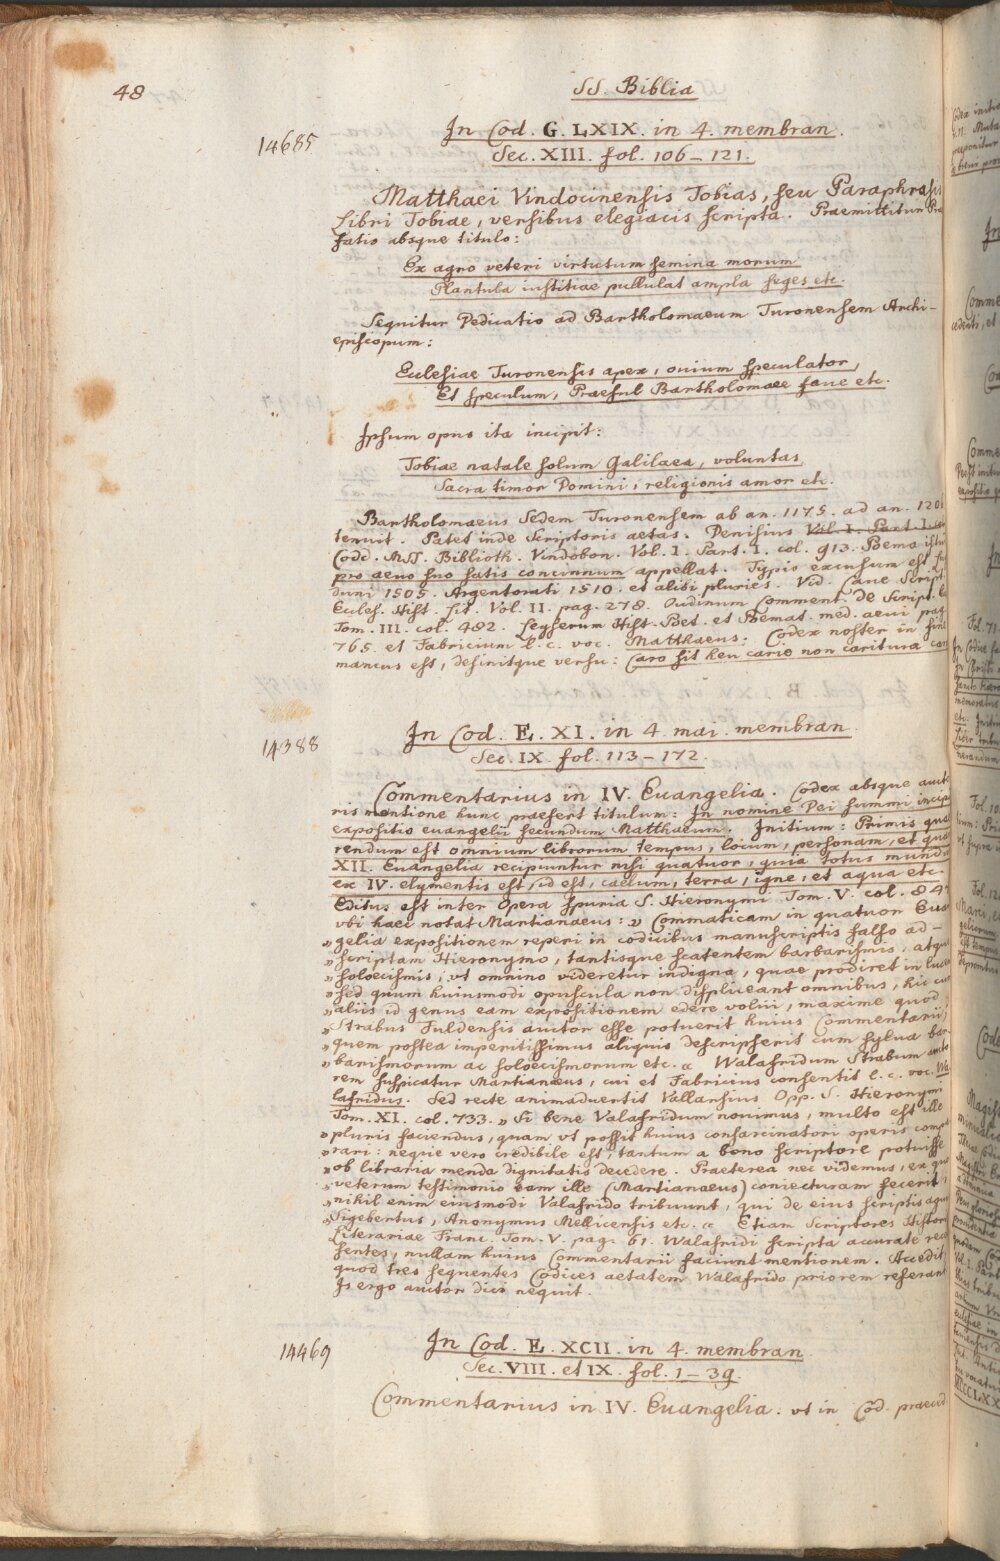 48
SS. Biblia
14685
In Cod. G. LXIX. in 4. membran.
Sec. XIII. fol. 106-121.
Matthaei Vindocinensis Tobias, seu Paraphrasis
Libri Tobiae, versibus elegiacis scripta. Praemittitur Prae
fatio absque titulo:
Ex agro veteri virtutum semina morum
Plantula iustitiae pullulat ampla seges etc.
Sequitur Dedicatio ad Bartholomaeum Turonensem Archi-
episcopum:
Ecclesiae Turonensis apex, ovium speculator,
Et speculum, Praesul Bartholomaee fave etc.
Ipsum opus ita incipit:
Tobiae natale solum Galilaea, voluntas
Sacra timor Domini, religionis amor etc.
Bartholomaeus Sedem Turonensem ab an. 1175. ad an. 120
tenuit. Patet inde Scriptoris aetas. Denisius Vol. I. Part. I.
Codd. MSS. Biblioth. Vindobon. Vol. I. Part. I. col. 913. Poema istud
pro aevo suo satis concinnum appellat. Typis excusum est
duni 1505. Argentorati 1510. et alibi pluries. Vid. Cave Script.
Eccles. Hist. lit. Vol. II. pag. 278. Oudinum Comment. de Script. E
Tom. III. col. 482. Leyserum Hist. Poet. et Poemat. med. aevi pag.
765. et Fabricium l. c. voc. Matthaeus. Codex noster in fine
mancus est, desinitque versu: Caro sit heu carie non caritura
14388
In Cod. E. XI. in 4. mai. membran
Sec. IX. fol. 113-172.
Commentarius in IV. Euangelia. Codex absque aucto
ris mentione hunc praefert titulum: In nomine Dei summi incip
expositio euangelii secundum Matthaeum. Initium: Primis quae
rendum est omnium librorum tempus, locum, personam, et quare
XII. Euangelia recipiuntur nisi quatuor, quia totus mundus
ex IV. elymentis est, id est, caelum, terra, igne, et aqua etc.
Editus est inter Opera spuria S. Hieronymi Tom. V. col. 84
vbi haec notat Martianaeus: „ Commaticam in quatuor Euan
„ gelia expositionem reperi in codicibus manuscriptis falso ad-
„ scriptam Hieronymo, tantisque scatentem barbarismis, atque
„ soloecismis, vt omnino videretur indigna, quae prodiret in lucem
„ sed quum huiusmodi opuscula non displiceant omnibus, hic cum
„ aliis id genus eam expositionem edere volui, maxime quod
„ Strabus Fuldensis auctor esse potuerit huius Commentarii,
„ quem postea imperitissimus aliquis descripserit cum sylua bar-
„ barismorum ac soloecismorum etc. „ Walafridum Strabum aucto
rem suspicatur Martianaeus, cui et Fabricius consentit l. c. voc. Wa
lafridus. Sed recte animaduertit Vallarsius Opp. S. Hieronymi
Tom. XI. col. 733. „ Si bene Valafridum novimus, multo est ille
„ pluris faciendus, quam vt possit huius consarcinatori operis compa
„ rari: neque vero credibile est, tantum a bono scriptore potuisse
„ ob libraria menda dignitatis decedere. Praeterea nec videmus, ex quo
„ veterum testimonio eam ille (Martianaeus) coniecturam fecerit,
„ nihil enim eiusmodi Valafrido tribuunt, qui de eius scriptis agunt
„ Sigebertus, Anonymus Mellicensis etc. „ Etiam Scriptores Histor.
Literariae Franc. Tom. V. pag. 61. Walafridi scripta accurate rec
sentes, nullam huius Commentarii faciunt mentionem. Accedit,
quod tres sequentes Codices aetatem Walafrido priorem referant
Is ergo auctor dici nequit.
14469
In Cod. E. XCII. in 4. membran
Sec. VIII. et IX. fol. 1-39.
Commentarius in IV. Euangelia. vt in Cod. praeced